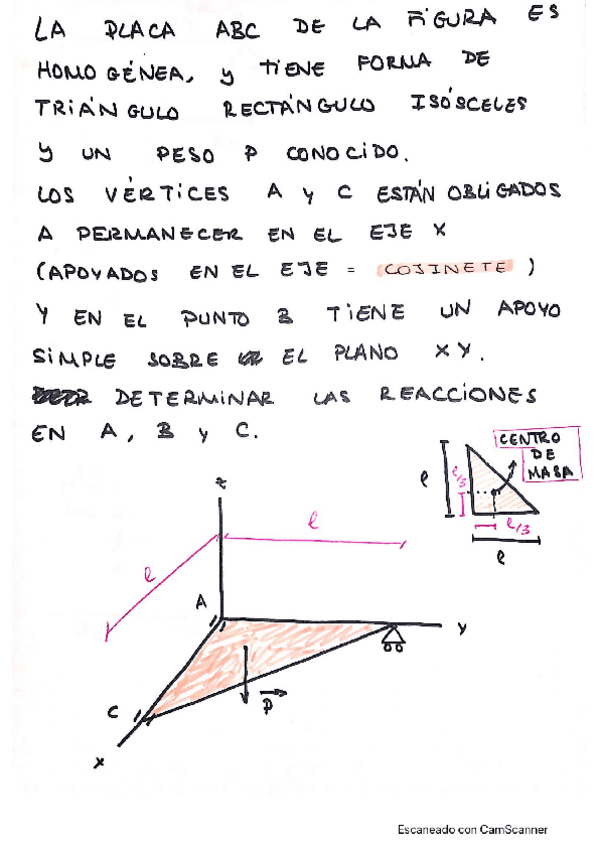 LA PLACA ABC DE LA FIGURA ES
HOMOGÉNEA, y TIENE FORMA DE
TRIÁNGULO RECTÁNGULO ISÓSCELES
Y UN PESO P CONOCIDO.
LOS VÉRTICES A y C ESTÁN OBLIGADOS
A PERMANECER EN EL EJE X
(APOYADOS EN EL EJE = COJINETE)
Y EN EL PUNTO B TIENE UN APOYO
SIMPLE SOBRE EL PLANO XY.
DETERMINAR LAS REACCIONES
EN A, B y C.
CENTRO
DE
MASA
l
l/3
l/3
l
z
l
l
A
y
C
P
x
Escaneado con CamScanner